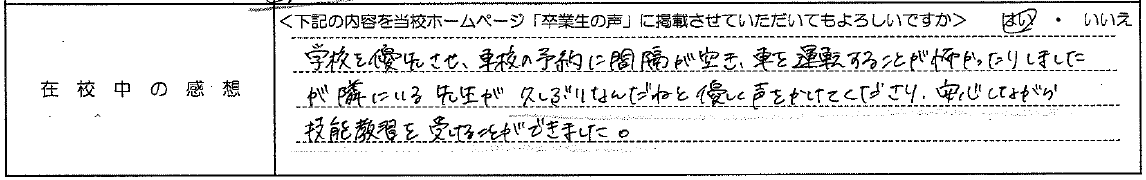 <下記の内容を当校ホームページ「卒業生の声」に掲載させていただいてもよろしいですか> はい ・ いいえ
在校中の感想
学校を優先させ、車校の予約に間隔が空き、車を運転することが怖かったりしました
が隣にいる先生が久しぶりなんだねと優しく声をかけてくださり、安心しながら
技能教習を受けることができました。